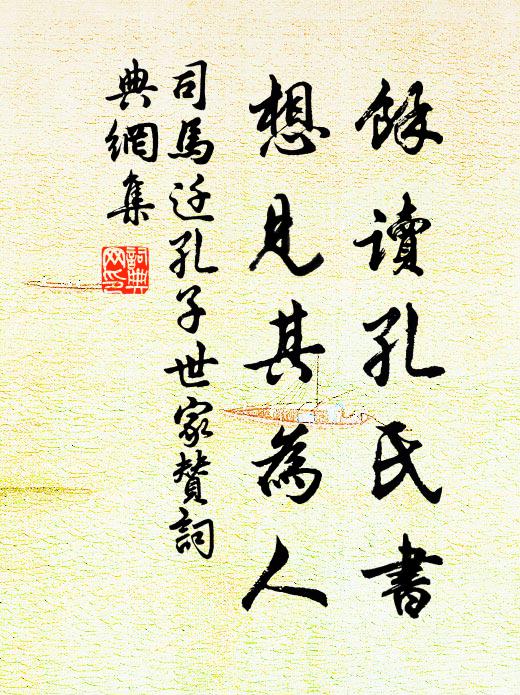 餘讀孔氏書
想見其為人
司馬迁孔子世家贊詞
典網集
詞典
网印